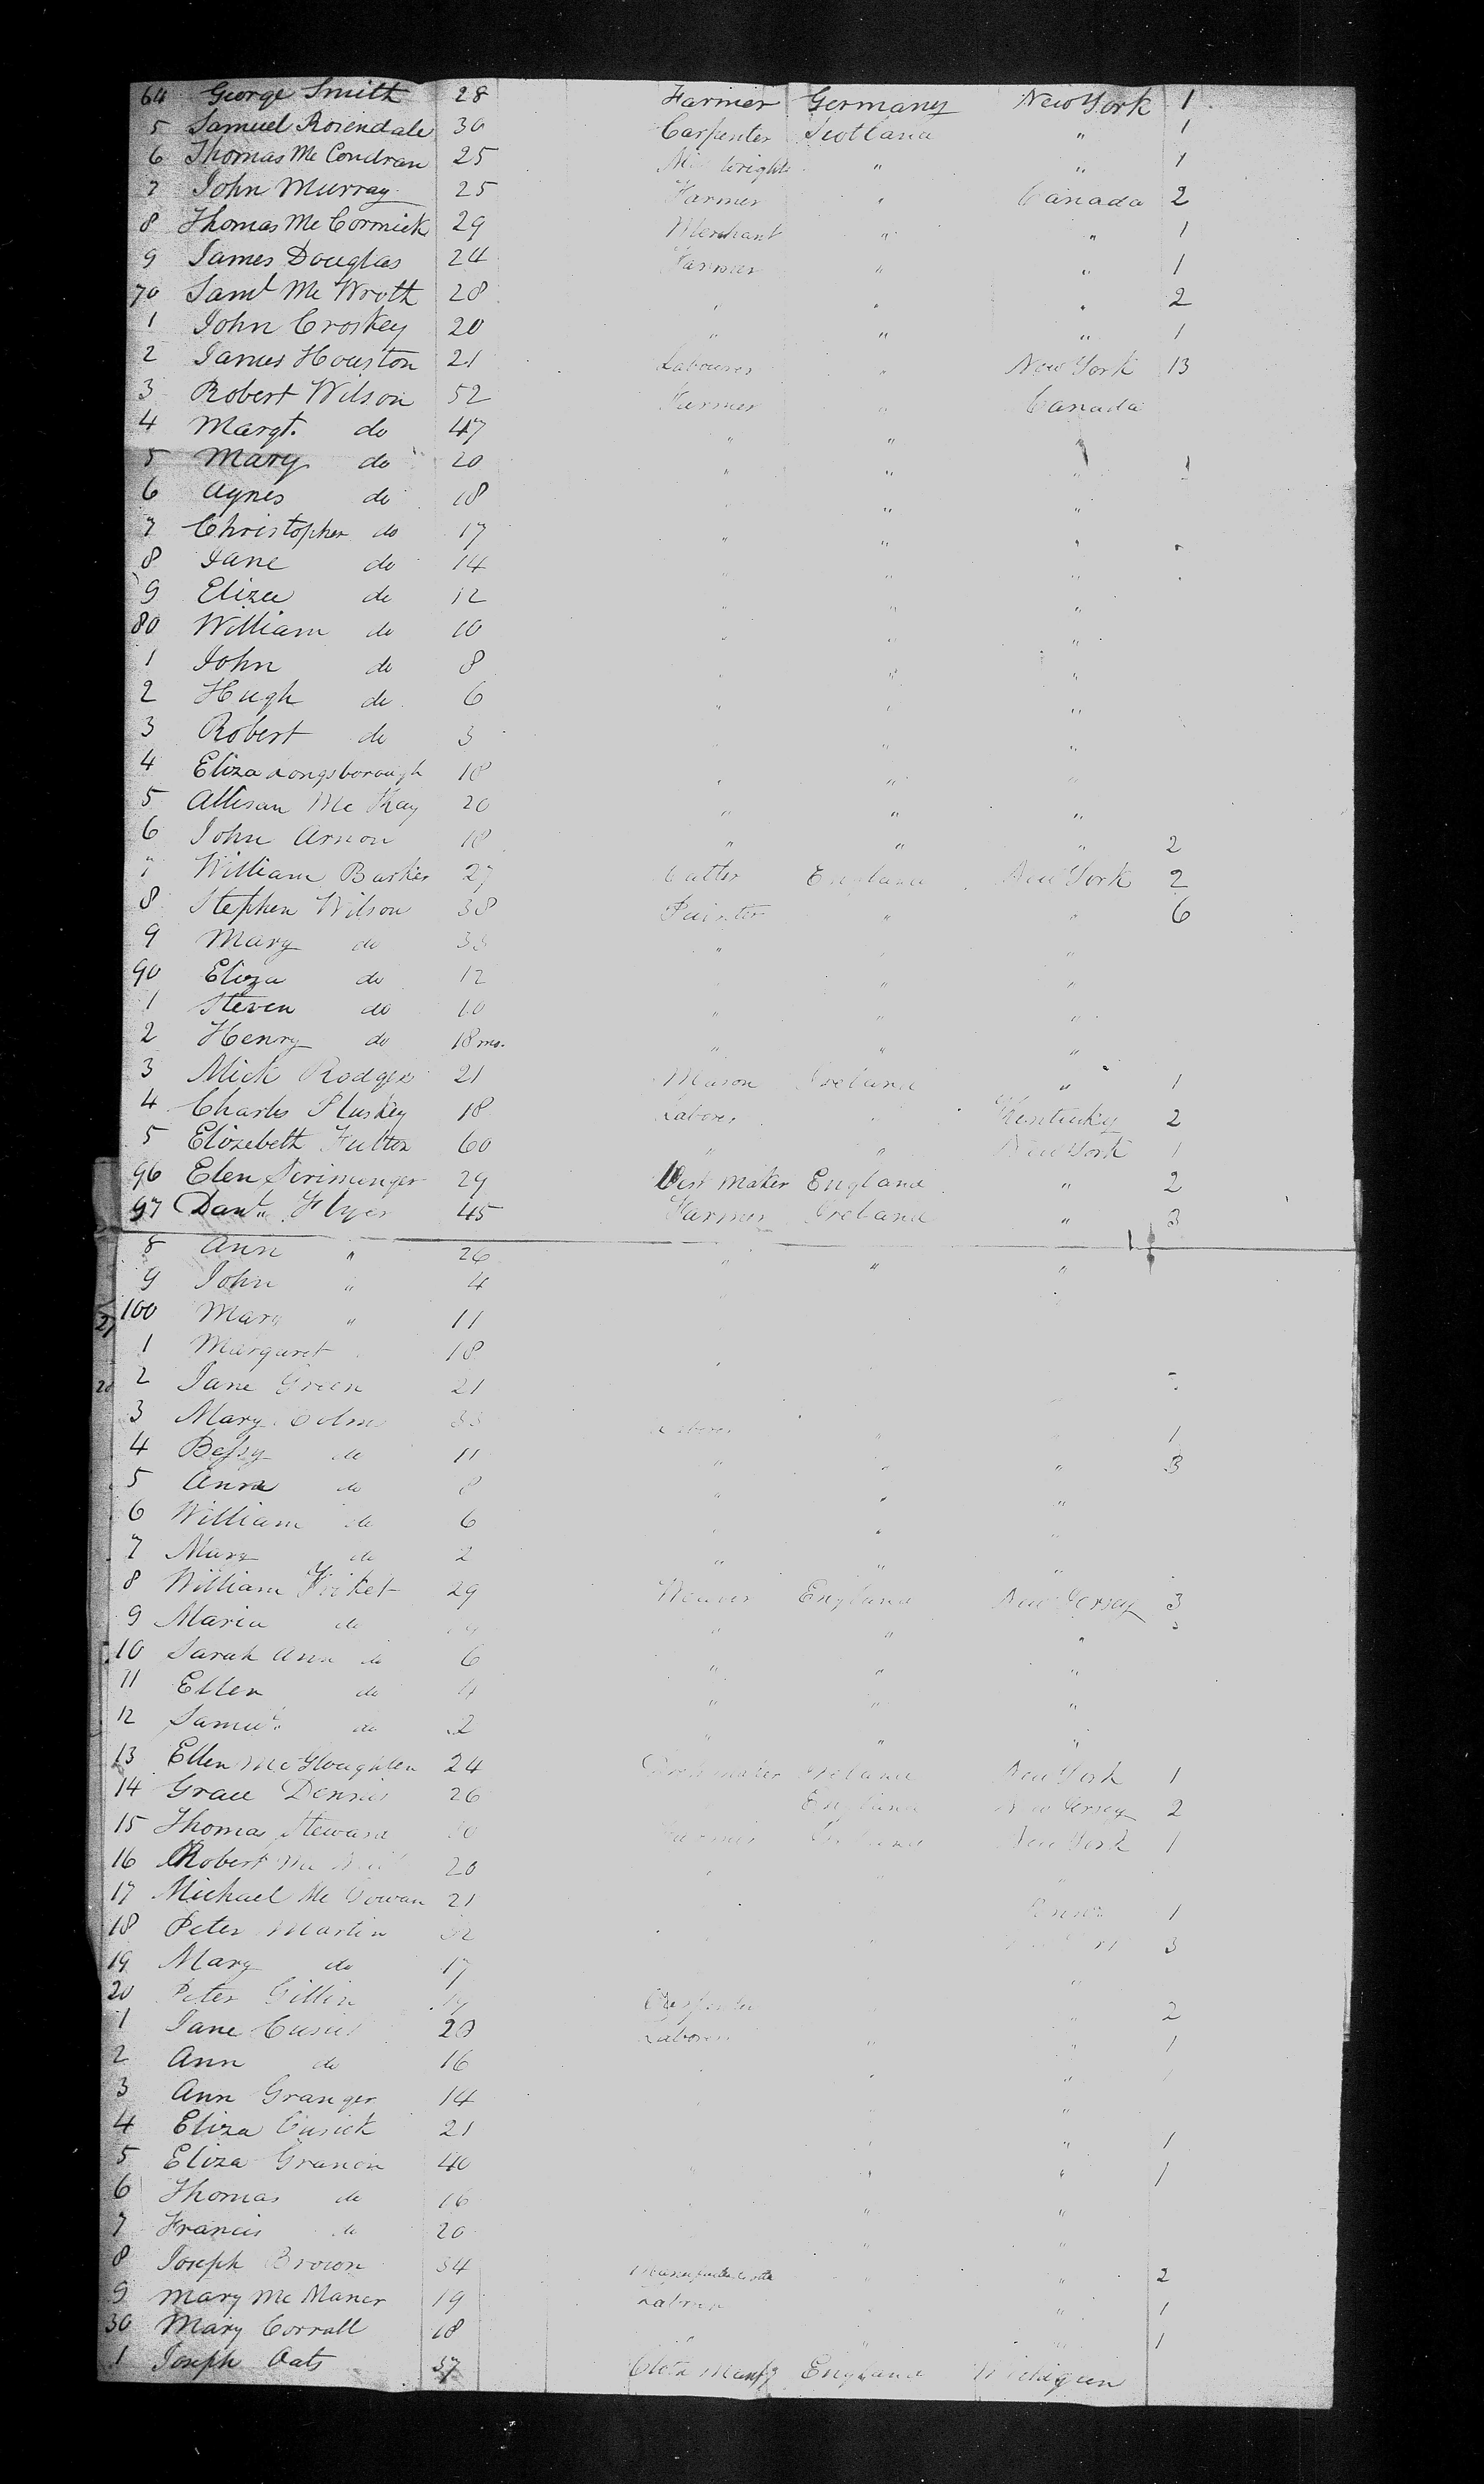 64 George Smith 28 Farmer Germany New York 1
5 Samuel Rosendale 30 Carpenter Scotland " 1
6 Thomas Mc Condran 25 wright " " 1
7 John Murray 25 Farmer " Canada 2
8 Thomas Mc Cormick 29 Merchant " " 1
9 James Douglas 24 Farmer " " 1
70 Saml Mc Wroth 28 " " " 2
1 John Croskey 20 " " " 1
2 James Houston 21 Labourer " New York 13
3 Robert Wilson 52 Farmer " Canada
4 Margt. do 47 " " "
5 Mary do 20 " " "
6 Agnes do 18 " "
7 Christopher do 17 " " "
8 Jane do 14 " " "
9 Eliza do 12 " " "
80 William do 10 " " "
1 John do 8 " " "
2 Hugh do 6 " " "
3 Robert do 3 " " "
4 Eliza Longsborough 18 " " "
5 Allisan Mc Kay 20 " " "
6 John Arnon 18 " " " 2
7 William Barker 27 England New York 2
8 Stephen Wilson 38 Painter " " 6
9 Mary do " " "
90 Eliza do 12 " " "
1 Steven do 10 " " "
2 Henry do 18 mo. " " "
3 Mick Rodger 21 Mason Ireland " 1
4 Charles Pluskey 18 Laborer " Kentucky 2
5 Elizebeth Fulton 60 " " New York 1
96 Elen Scrimenger 29 Vest Maker England " 2
97 Danl. Flyer 45 Farmer Ireland " 3
8 Ann " 26 " " "
9 John " 4
100 Mary " 11
1 Margaret 18
2 Jane Green 21
3 Mary Laborer " " 1
4 Bessy do 11 " " " 3
5 Anna do 8 " " "
6 William do 6 " " "
7 Mary do 2 " " "
8 William 29 Weaver England New Jersey 3
9 Maria do " " "
10 Sarah Ann do 6 " " "
11 Ellen do 4 " " "
12 Samul. do 2 " " "
13 Ellen Mc Gloughlen 24 Ireland New York 1
14 Grace Dennis 26 England New Jersey 2
15 Thomas Steward Farmer New York 1
16 Robert Mc 20 "
17 Michael Mc Gowan 21 1
18 Peter Martin 3
19 Mary do 17 "
20 Peter Gillin " 2
1 Jane 20 Laborer " " 1
2 Ann do 16 " "
3 Ann Granger 14 " "
4 Eliza Cusick 21 " " 1
5 Eliza Granon 40 " " 1
6 Thomas do 16 " "
7 Francis do 20 " "
8 Joseph Brown 34 " " 2
9 Mary Mc Maner 19 Laborer " 1
30 Mary Corrall 18 " " " 1
1 Joseph Oats 37 Cloth Manfg England Michigan